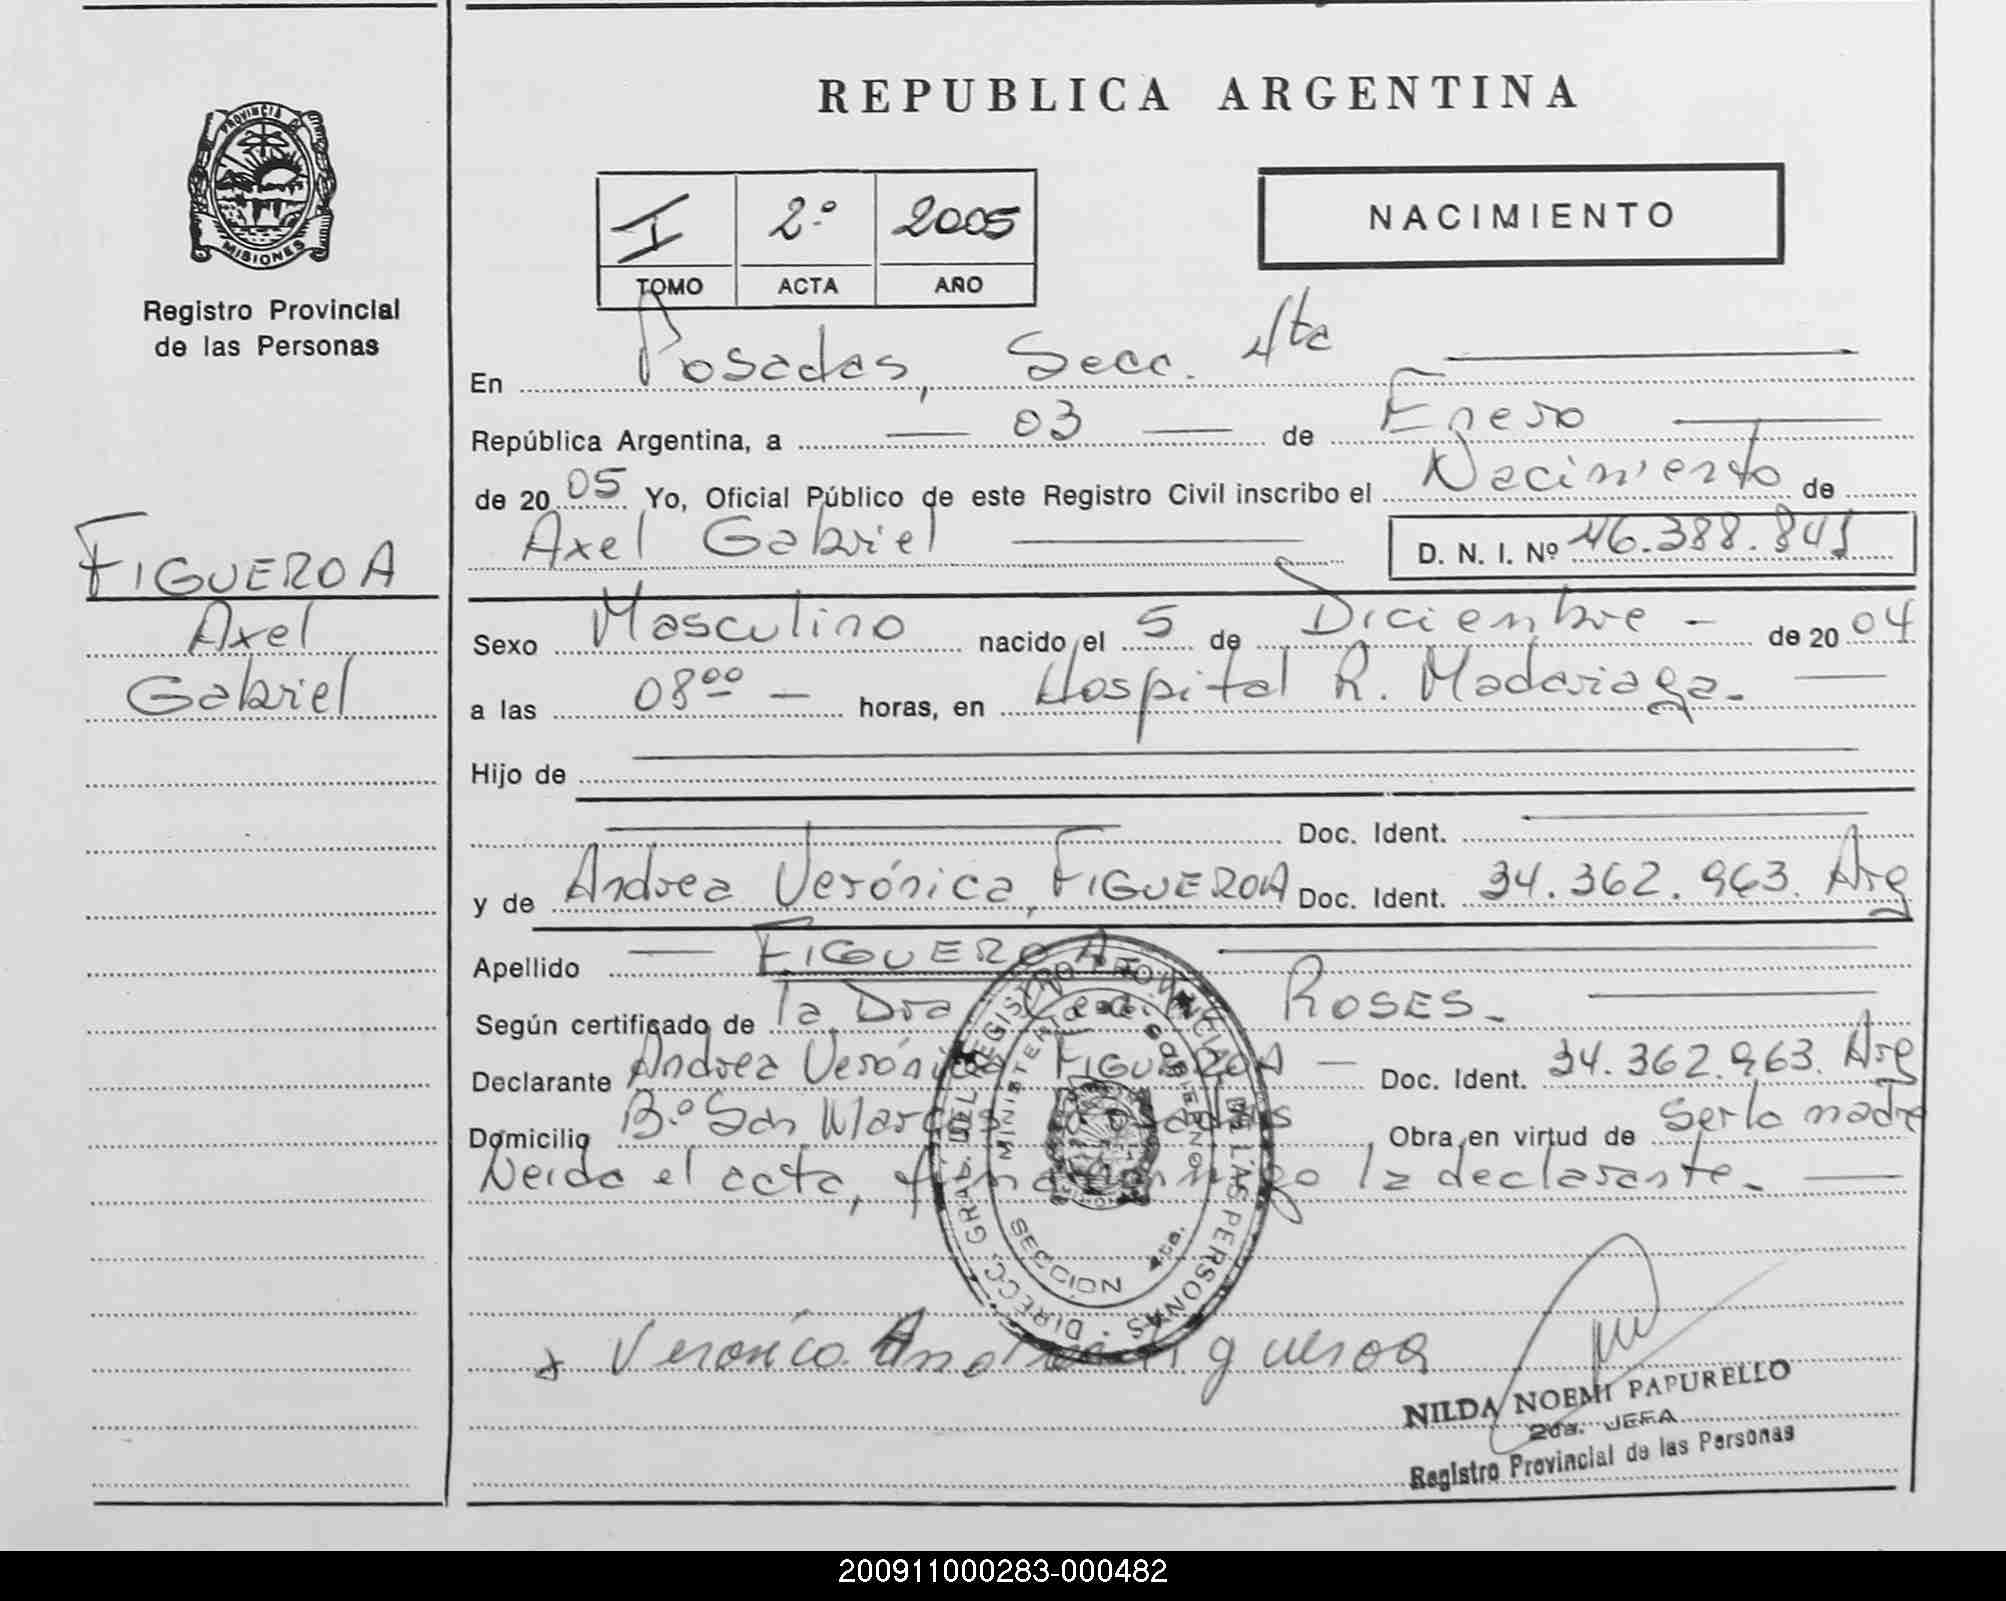 REPUBLICA ARGENTINA
PROVINCIA DE MISIONES
Registro Provincial
de las Personas
FIGUEROA
Axel
Gabriel
I 2º 2005
TOMO ACTA AÑO
NACIMIENTO
En Posadas, Secc. 4ta
República Argentina, a 03 de Enero
de 2005 Yo, Oficial Público de este Registro Civil inscribo el Nacimiento de
Axel Gabriel D. N. I. Nº 46.388.841
Sexo Masculino nacido el 5 de Diciembre - de 2004
a las 08⁰⁰ - horas, en Hospital R. Madariaga.-
Hijo de
Doc. Ident.
y de Andrea Verónica, FIGUEROA Doc. Ident. 34.362.963. Arg
Apellido FIGUEROA
Según certificado de la Dra ROSES.-
Declarante Andrea Verónica FIGUEROA - Doc. Ident. 34.362.963. Arg
Domicilio Bº San Marcos Posadas, Obra en virtud de ser la madre
Leida el acta, firma conmigo la declarante.-
DIRECC. GRAL. DEL REGISTRO PROVINCIAL DE LAS PERSONAS
MINISTERIO DE GOBIERNO
SECCION 4ta.
x Veronica Andrea Figueroa
NILDA NOEMI PAPURELLO
2da. JEFA
Registro Provincial de las Personas
200911000283-000482